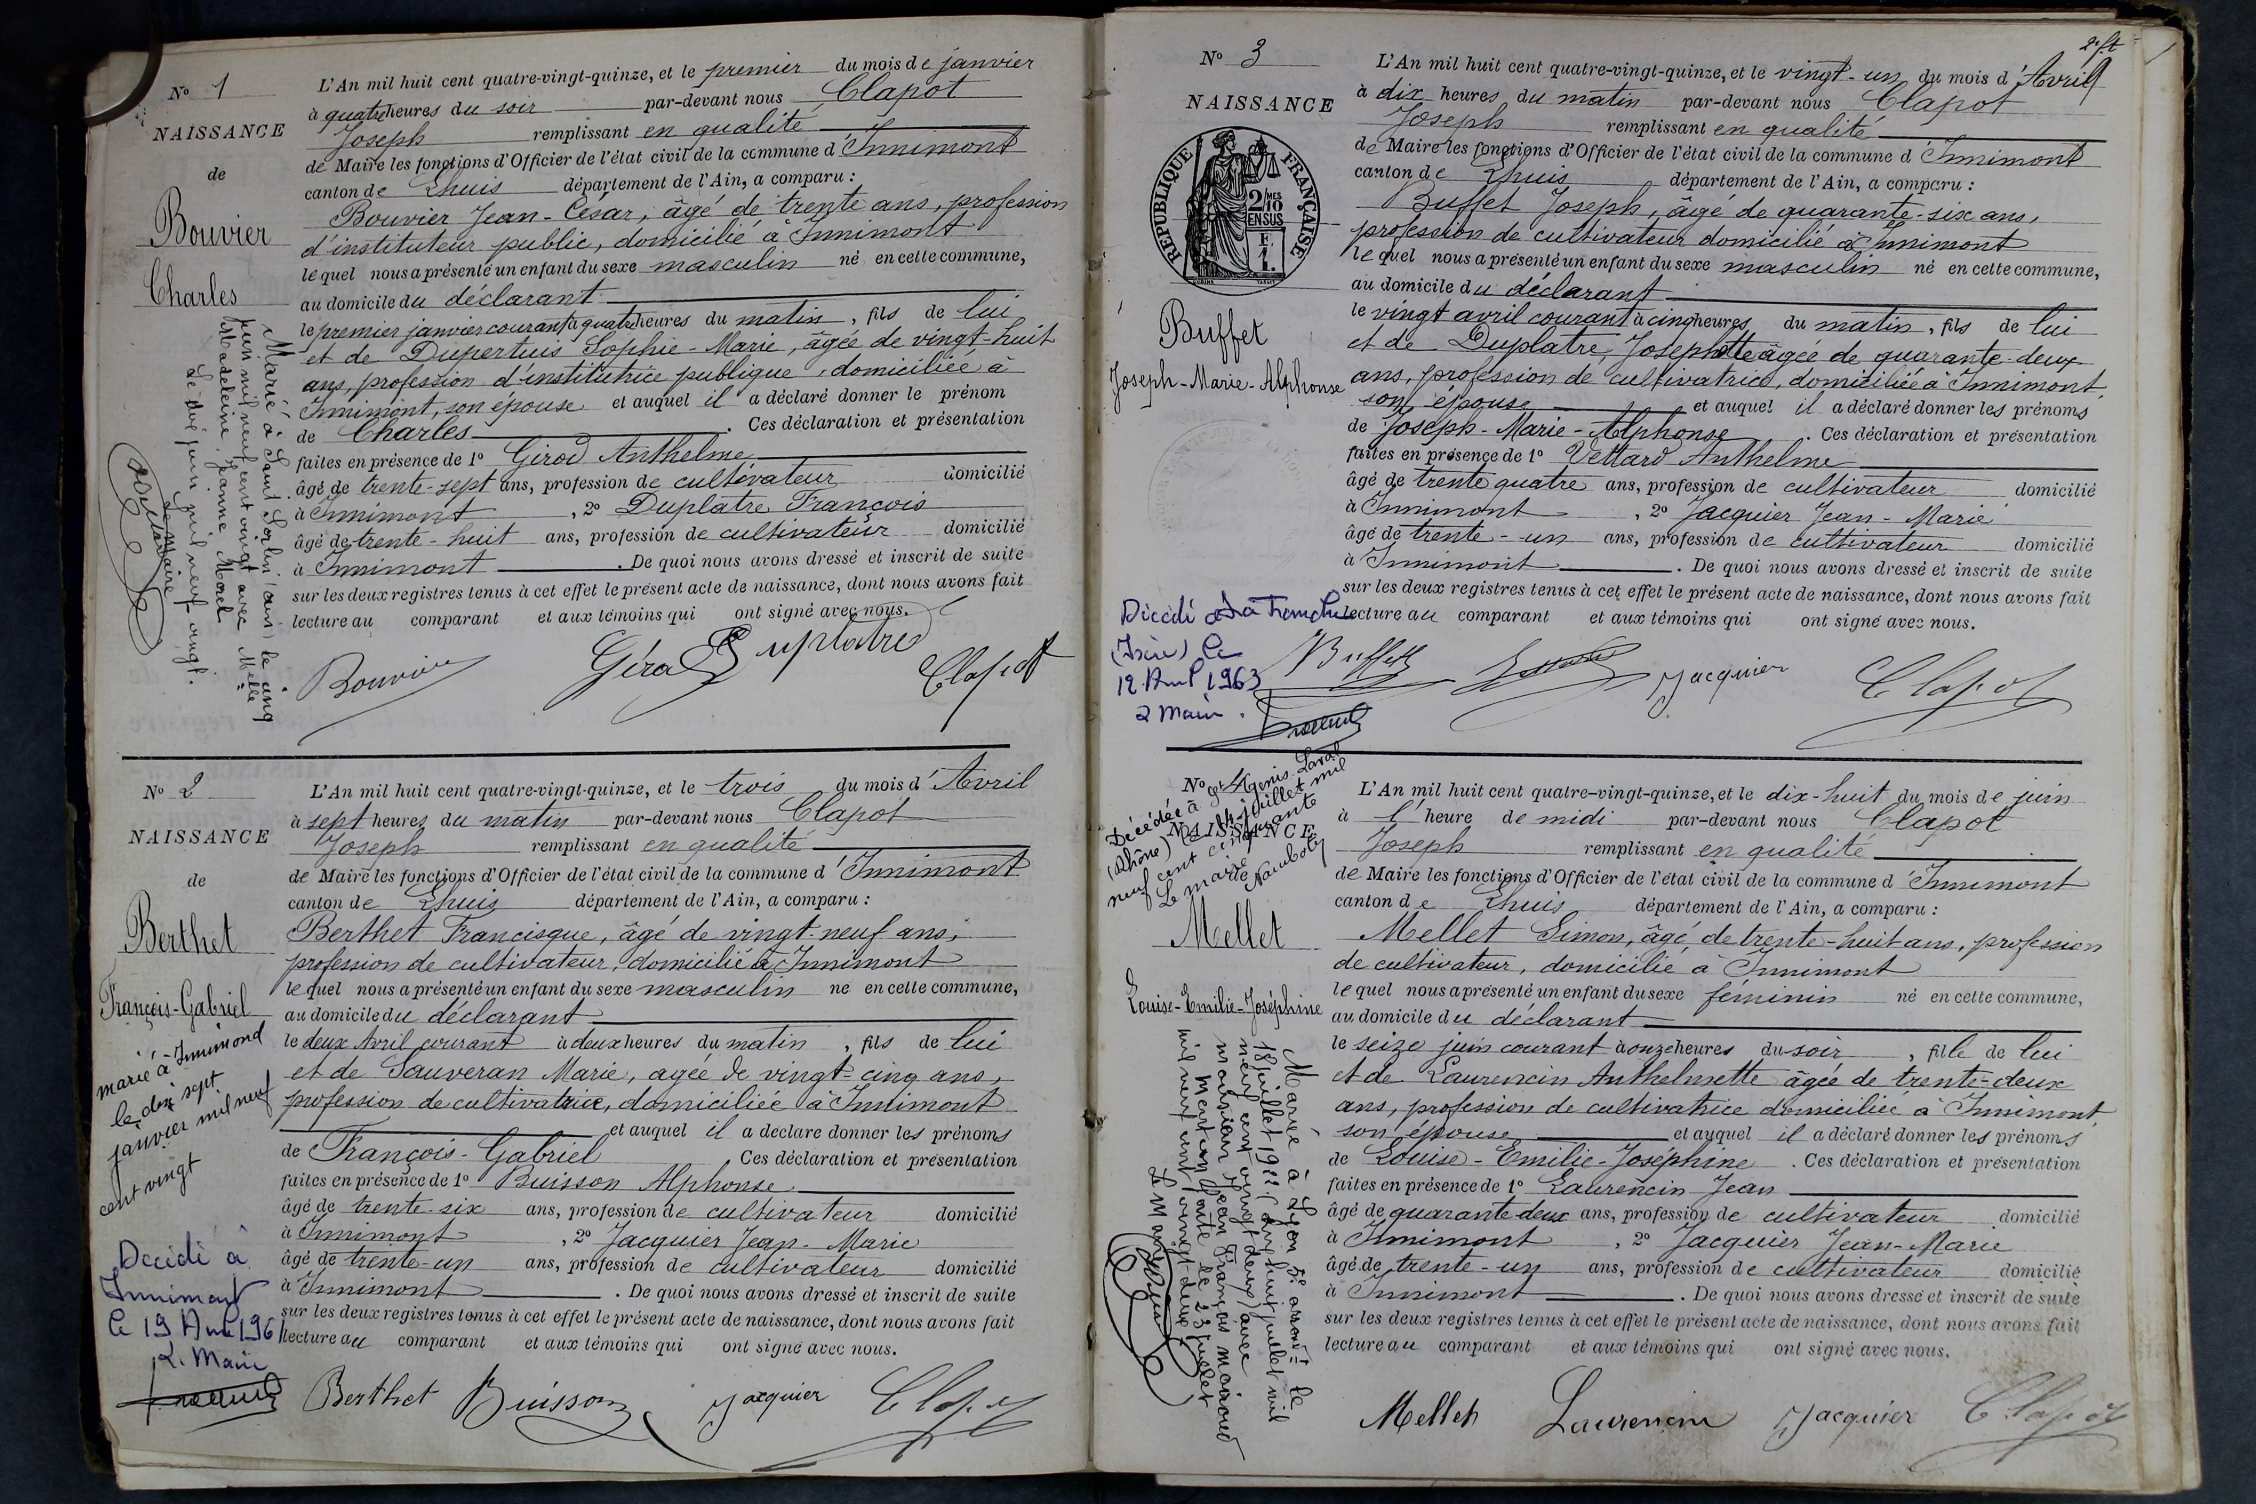 N° 1
NAISSANCE
de
Bouvier
Charles
Marié à Saint Sorlin (ain) le cinq
juin mil neuf cent vingt avec Melle
Madeleine Jeanne Morel
Le six juin mil neuf vingt.
Le Maire
L'An mil huit cent quatre-vingt-quinze, et le premier du mois de janvier
à quatre heures du soir par-devant nous Clapot
Joseph remplissant en qualité
de Maire les fonctions d'Officier de l'état civil de la commune d'Innimont
canton de Lhuis département de l'Ain, a comparu :
Bouvier Jean-César, âgé de trente ans, profession
d'instituteur public, domicilié à Innimont
lequel nous a présenté un enfant du sexe masculin né en cette commune,
au domicile du déclarant
le premier janvier courant à quatre heures du matin, fils de lui
et de Dupertuis Sophie-Marie, âgée de vingt-huit
ans, profession d'institutrice publique, domiciliée à
Innimont, son épouse et auquel il a déclaré donner le prénom
de Charles. Ces déclaration et présentation
faites en présence de 1° Girod Anthelme
âgé de trente-sept ans, profession de cultivateur domicilié
à Innimont, 2° Duplatre François
âgé de trente-huit ans, profession de cultivateur domicilié
à Innimont. De quoi nous avons dressé et inscrit de suite
sur les deux registres tenus à cet effet le présent acte de naissance, dont nous avons fait
lecture au comparant et aux témoins qui ont signé avec nous.
Bouvier Duplatre Clapot
N° 2
NAISSANCE
de
Berthet
François-Gabriel
marié à Innimond
le dix sept
janvier mil neuf
cent vingt
Décédé à
Innimont
le 19 Avril 1961
L. Maire
L'An mil huit cent quatre-vingt-quinze, et le trois du mois d'Avril
à sept heures du matin par-devant nous Clapot
Joseph remplissant en qualité
de Maire les fonctions d'Officier de l'état civil de la commune d'Innimont
canton de Lhuis département de l'Ain, a comparu :
Berthet Francisque, âgé de vingt-neuf ans,
profession de cultivateur, domicilié à Innimont
lequel nous a présenté un enfant du sexe masculin né en cette commune,
au domicile du déclarant
le deux Avril courant à deux heures du matin, fils de lui
et de Sauveran Marie, agée de vingt-cinq ans,
profession de cultivatrice, domiciliée à Innimont
et auquel il a déclaré donner les prénoms
de François-Gabriel Ces déclaration et présentation
faites en présence de 1° Buisson Alphonse
âgé de trente-six ans, profession de cultivateur domicilié
à Innimont, 2° Jacquier Jean-Marie
âgé de trente-un ans, profession de cultivateur domicilié
à Innimont. De quoi nous avons dressé et inscrit de suite
sur les deux registres tenus à cet effet le présent acte de naissance, dont nous avons fait
lecture au comparant et aux témoins qui ont signé avec nous.
Berthet Buisson Jacquier Clapot
2e ft
N° 3
NAISSANCE
REPUBLIQUE FRANÇAISE
2/10 MES
EN SUS
F.
1.
Buffet
Joseph-Marie-Alphonse
Décédé à La Tronche
(Isère) le
12 Avril 1963
L Maire.
L'An mil huit cent quatre-vingt-quinze, et le vingt-un du mois d'Avril
à dix heures du matin par-devant nous Clapot
Joseph remplissant en qualité
de Maire les fonctions d'Officier de l'état civil de la commune d'Innimont
canton de Lhuis département de l'Ain, a comparu :
Buffet Joseph, âgé de quarante-six ans,
profession de cultivateur domicilié à Innimont
lequel nous a présenté un enfant du sexe masculin né en cette commune,
au domicile du déclarant
le vingt avril courant à cinq heures du matin, fils de lui
et de Duplatre, Josephtte âgée de quarante-deux
ans, profession de cultivatrice, domiciliée à Innimont,
son épouse et auquel il a déclaré donner les prénoms
de Joseph-Marie-Alphonse. Ces déclaration et présentation
faites en présence de 1° Vettard Anthelme
âgé de trente quatre ans, profession de cultivateur domicilié
à Innimont, 2° Jacquier Jean-Marie
âgé de trente-un ans, profession de cultivateur domicilié
à Innimont. De quoi nous avons dressé et inscrit de suite
sur les deux registres tenus à cet effet le présent acte de naissance, dont nous avons fait
lecture au comparant et aux témoins qui ont signé avec nous.
Buffet Jacquier Clapot
N° 4
NAISSANCE
Décédée à St Genis-Laval
(Rhône) le 14 juillet mil
neuf cent cinquante
Le maire
Mellet
Louise-Emilie-Joséphine
Mariée à Lyon 5e arront le
18 juillet 1922 (dix huit juillet mil
neuf cent vingt deux) avec
monsieur Jean François
Mention faite le 23 juillet
mil neuf cent vingt deux
Le Maire
L'An mil huit cent quatre-vingt-quinze, et le dix-huit du mois de juin
à l'heure de midi par-devant nous Clapot
Joseph remplissant en qualité
de Maire les fonctions d'Officier de l'état civil de la commune d'Innimont
canton de Lhuis département de l'Ain, a comparu :
Mellet Simon, âgé de trente-huit ans, profession
de cultivateur, domicilié à Innimont
lequel nous a présenté un enfant du sexe féminin né en cette commune,
au domicile du déclarant
le seize juin courant à onze heures du soir, fille de lui
et de Laurencin Anthelmette âgée de trente-deux
ans, profession de cultivatrice domiciliée à Innimont,
son épouse et auquel il a déclaré donner les prénoms
de Louise-Emilie-Joséphine. Ces déclaration et présentation
faites en présence de 1° Laurencin Jean
âgé de quarante-deux ans, profession de cultivateur domicilié
à Innimont, 2° Jacquier Jean-Marie
âgé de trente-un ans, profession de cultivateur domicilié
à Innimont. De quoi nous avons dressé et inscrit de suite
sur les deux registres tenus à cet effet le présent acte de naissance, dont nous avons fait
lecture au comparant et aux témoins qui ont signé avec nous.
Mellet Laurencin Jacquier Clapot